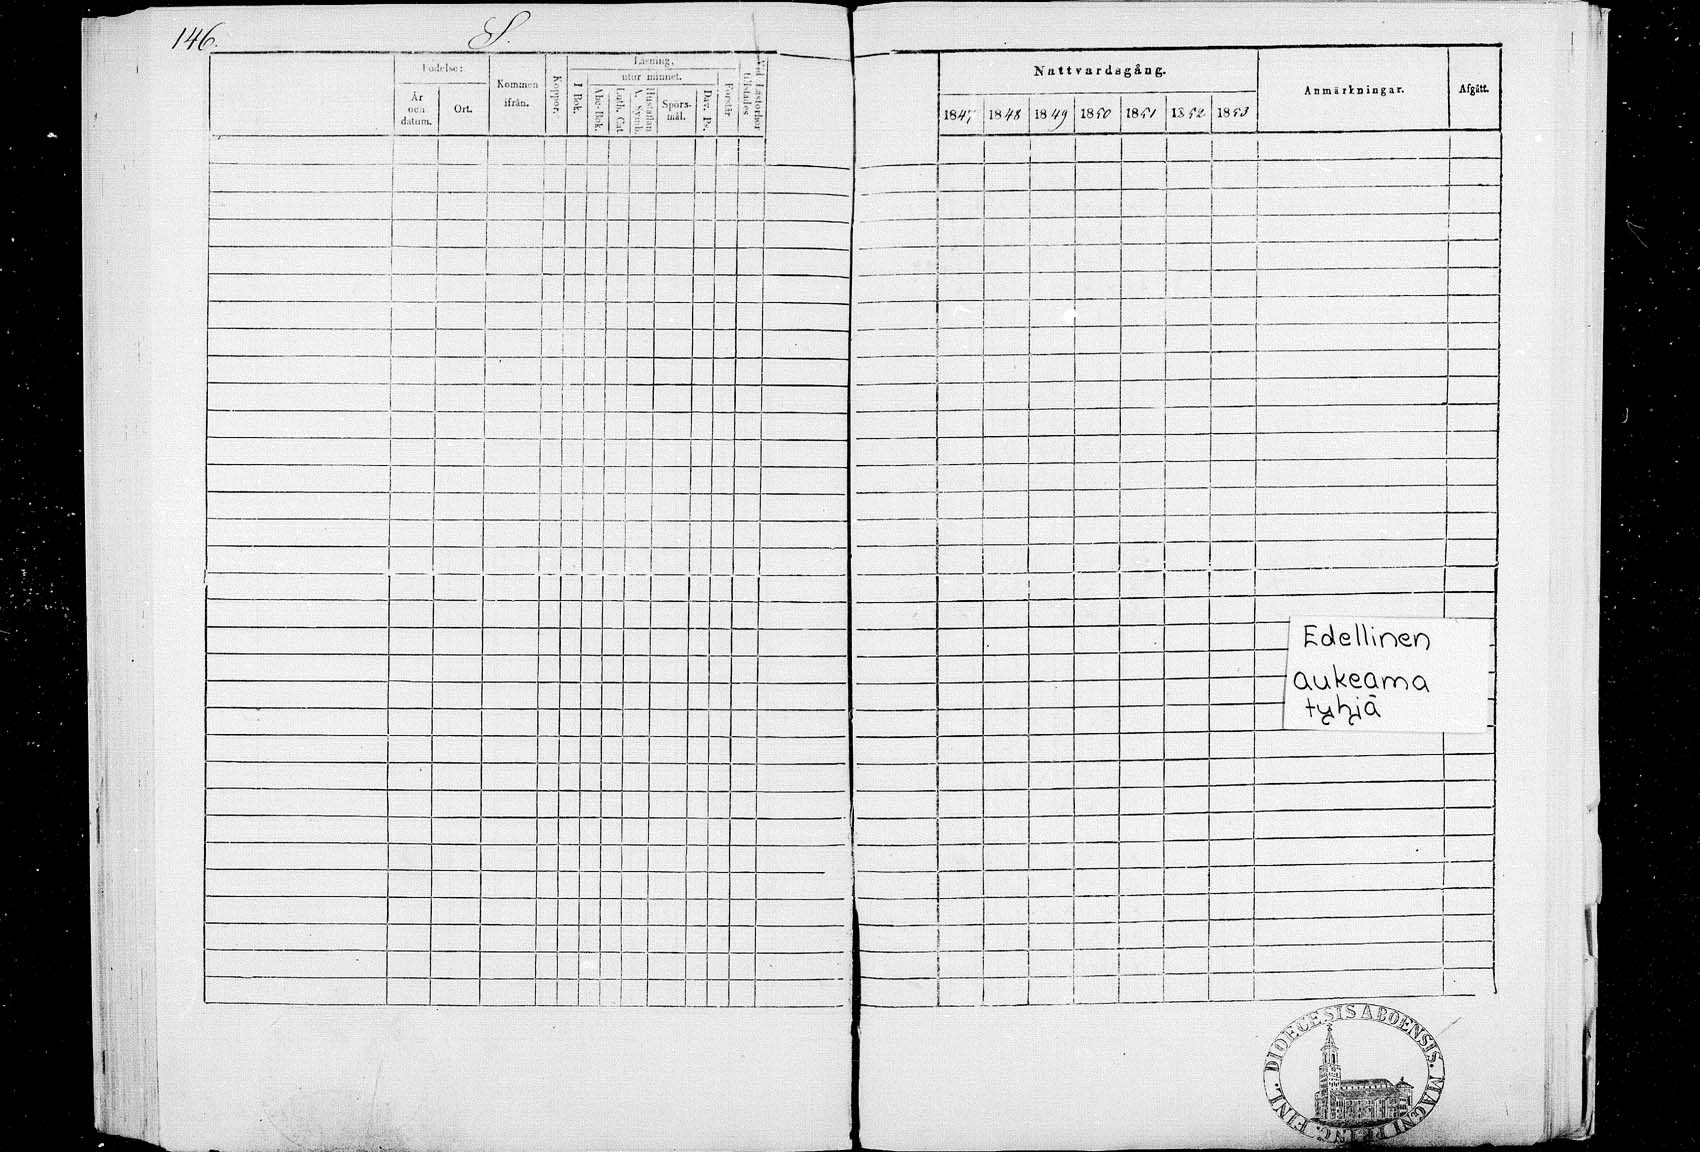 146. S.
Födelse:
År och datum.
Ort.
Kommen ifrån.
Koppor.
Läsning,
I Bok.
utur minnet.
Abc-Bok.
Luth. Cat
Hustaflan A. Symb.
Spörsmål.
Dav. Ps.
Förstår
Vid Läsförhör tillstädes
Nattvardsgång.
1847 1848 1849 1850 1851 1852 1853
Anmärkningar.
Afgått.
Edellinen
aukeama
tyhjä
DIOECESIS ABOENSIS. MAGNI PRINC. FINL.